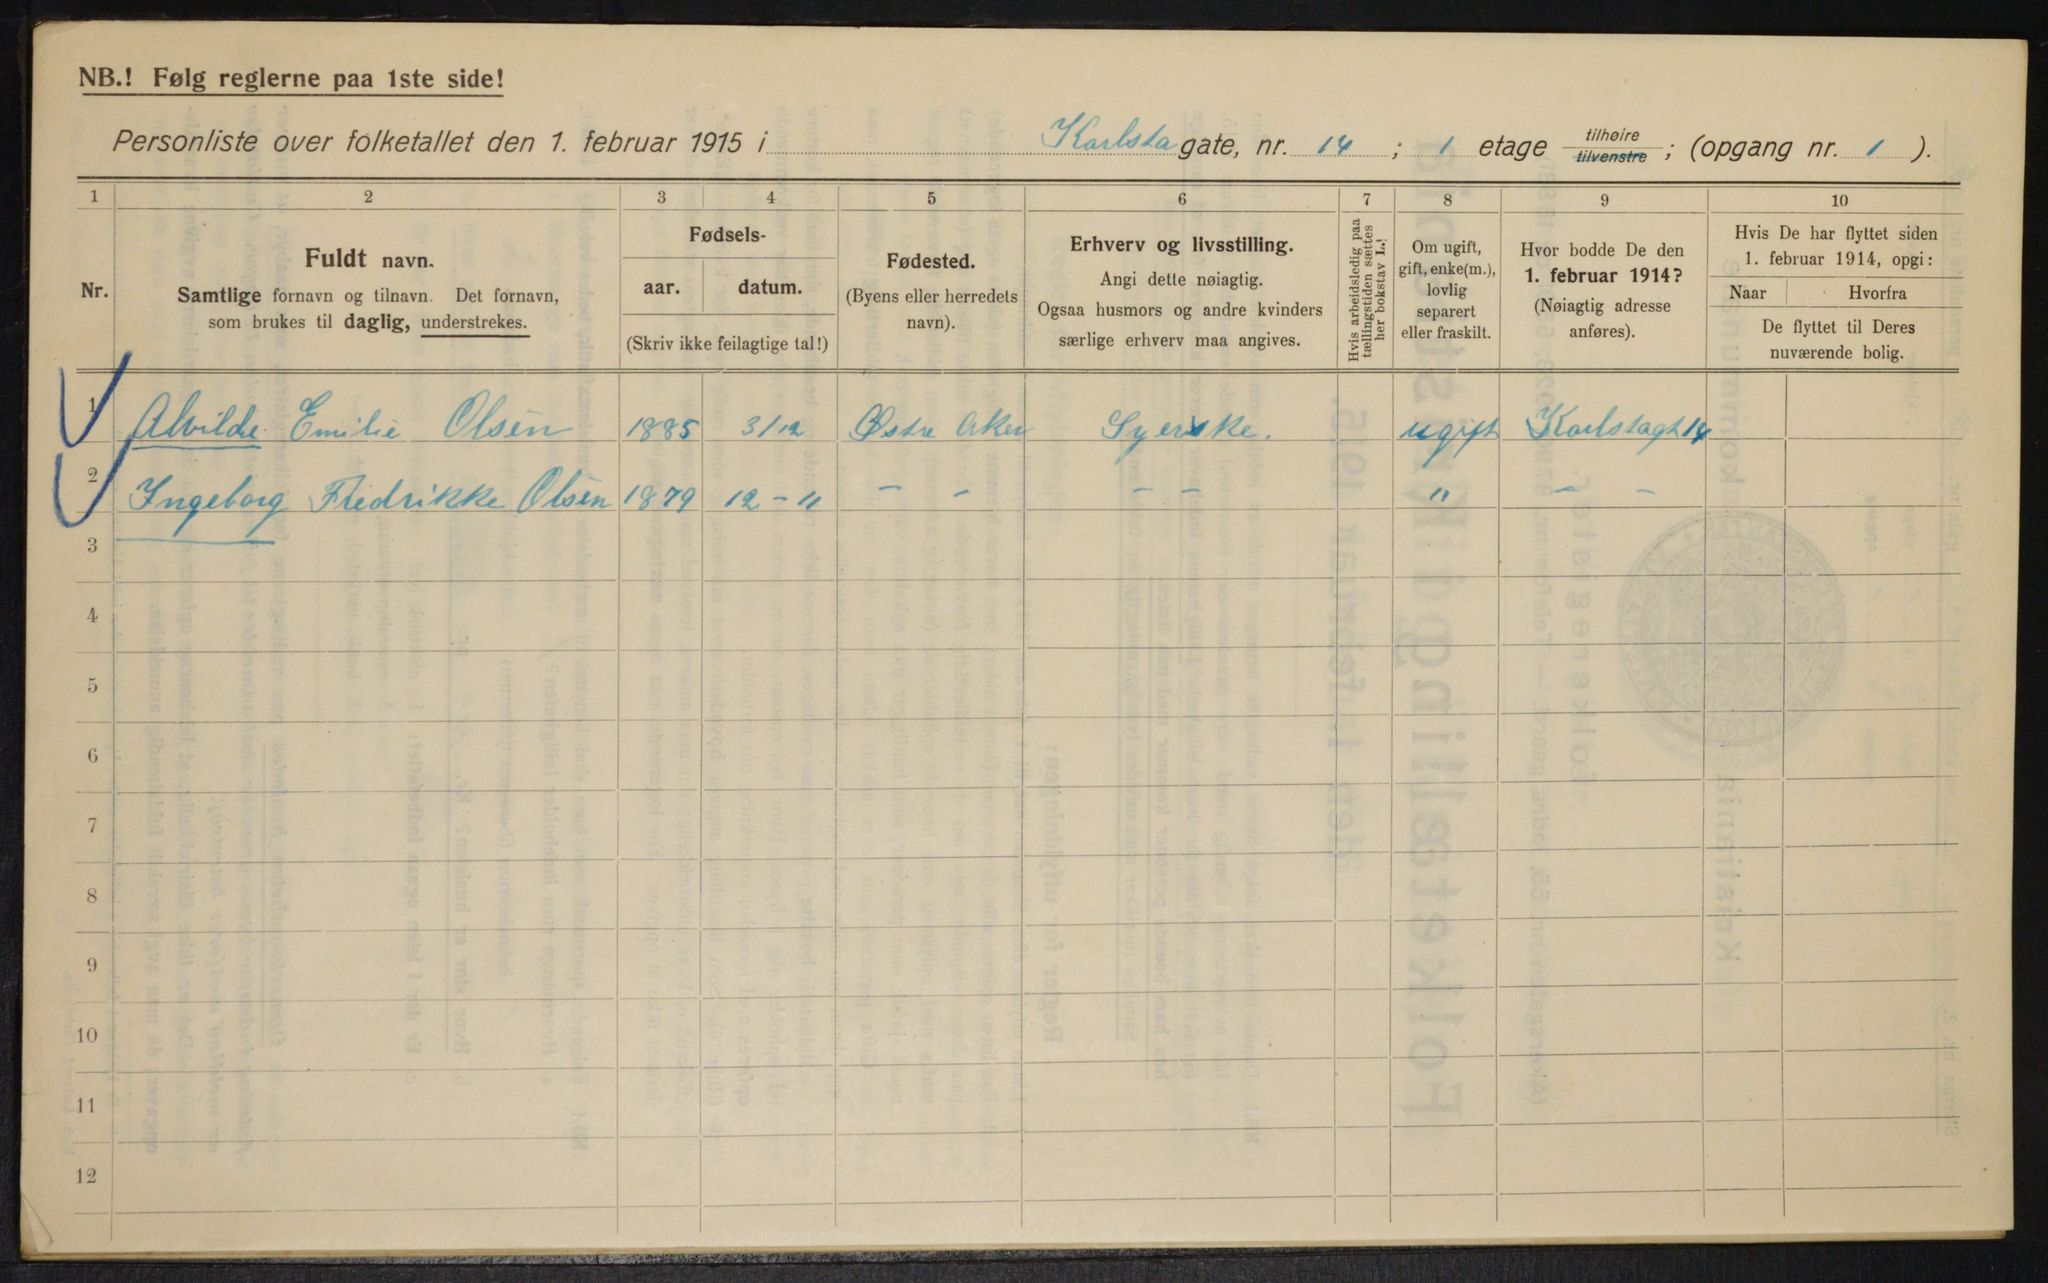 NB.! Følg reglerne paa 1ste side!
Personliste over folketallet den 1. februar 1915 i Karlsta gate, nr. 14 ; 1 etage tilhøire tilvenstre ; (opgang nr. 1 ).
1 2 3 4 5 6 7 8 9 10
Nr.
Fuldt navn.
Samtlige fornavn og tilnavn. Det fornavn,
som brukes til daglig, understrekes.
Fødsels-
aar. datum.
(Skriv ikke feilagtige tal!)
Fødested.
(Byens eller herredets
navn).
Erhverv og livsstilling.
Angi dette nøiagtig.
Ogsaa husmors og andre kvinders
særlige erhverv maa angives.
Hvis arbeidsledig paa
tællingstiden sættes
her bokstav L.!
Om ugift,
gift, enke(m.),
lovlig
separert
eller fraskilt.
Hvor bodde De den
1. februar 1914?
(Nøiagtig adresse
anføres).
Hvis De har flyttet siden
1. februar 1914, opgi:
Naar Hvorfra
De flyttet til Deres
nuværende bolig.
1 Alvilde Emilie Olsen 1885 3/12 Østre Aker Syerske. ugift Karlstagt 14
2 Ingeborg Fredrikke Olsen 1879 12 - 11 - - - - " - -
3
4
5
6
7
8
9
10
11
12